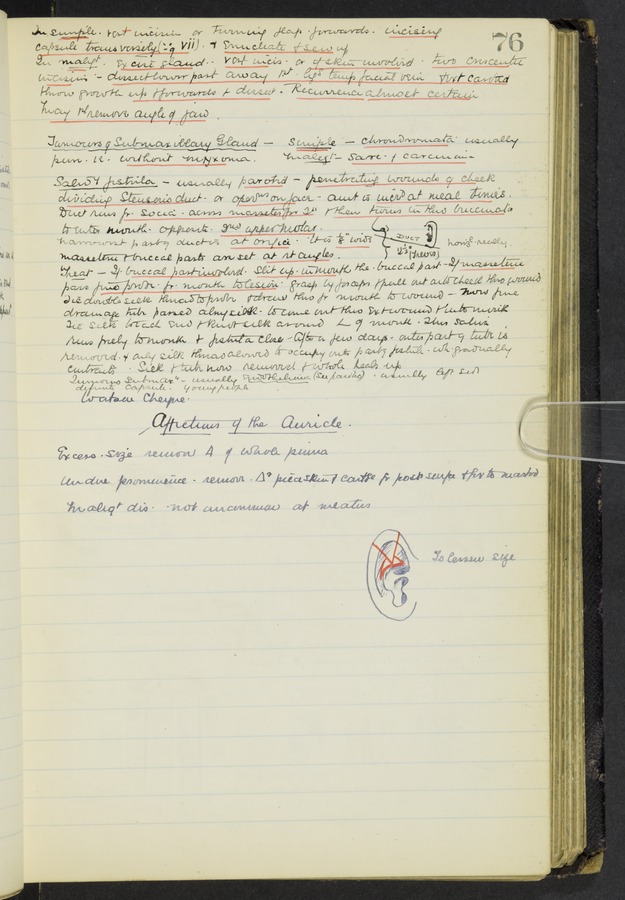 76
In simple. vert incision or turning flap forwards. incising
capsule transversely (∵ of VII). & Enucleate & sew up
In maligt. Excise gland. vert incis. or if skin involvd. two crescentic
incisions - dissect lower part away 1st. ligt temp facial vein & ext carotid
throw growth up & forwards & dissect. Recurrence almost certain
may 1st remove angle of jaw.
Tumours of Submaxillary Gland - simple - chondromata usually
pure. ie. without myxoma. maligt - sarc. & carcinoma
Salivy fistula - usually parotid - penetrating wounds of cheek
dividing Stenson's duct. or operns on face. amt is incrd at meal times.
Duct runs fr. socia. across masseter for 2" & then turns in thro buccinator
to enter mouth. opposite 2nd upper molar.
narrowest part of duct is at orifice. It is ⅛" wide
DUCT 2½" (Treves)
masseteric & buccal parts are set at rt angles.
Treat - If buccal part involvd. Slit up in mouth the buccal part - If masseteric
pass fine probe fr. mouth to lesion. grasp by forceps & pull out onto cheek thro wound
Tie double silk thread to probe & draw thro fr mouth to wound - now fine
drainage tube passed along silk to come out thro extl wound & into mouth
Tie silk to each end & knot silk around L of mouth. Thus saliva
runs freely to mouth & fistula close - After a few days. outer part of tube is
removed. & only silk thread allowed to occupy outer part of fistula. wh gradually
contracts. Silk & tube now removed & whole heals up
Tumours Submaxy - usually Endothelioma (see parotid). usually left side
definite capsule. young people
Watson Cheyne.
Affections of the Auricle.
Excess. size remove Δ of whole pinna
Undue prominence. remove. Δr piece skin & cartge fr post surface & fix to mastoid
Maligt dis. not uncommon at meatus
To lessen size